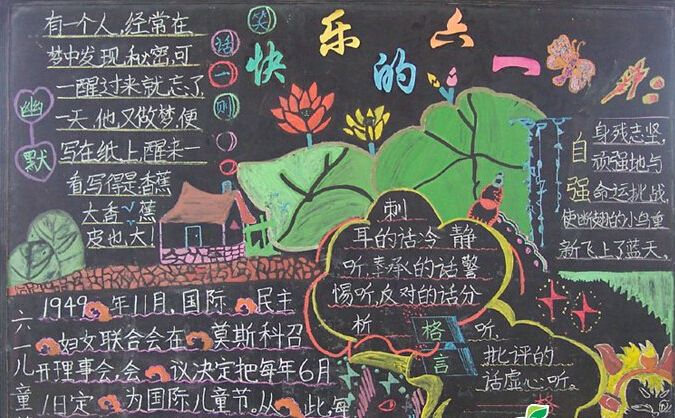 快乐的六一
笑话一则
幽默
有一个人,经常在
梦中发现秘密,可
一醒过来就忘了
一天,他又做梦,便
写在纸上,醒来一
看,写得是香蕉
大香蕉
皮也大!
自强
身残志坚,
顽强地与
命运挑战,
使断翅的小鸟重
新飞上了蓝天。
刺
耳的话冷静
听,奉承的话警
惕听,反对的话分
析听,
批评的
话虚心听。
格言
六一儿童
1949年11月,国际民主
妇女联合会在莫斯科召
开理事会,会议决定把每年6月
1日定为国际儿童节。从此,每